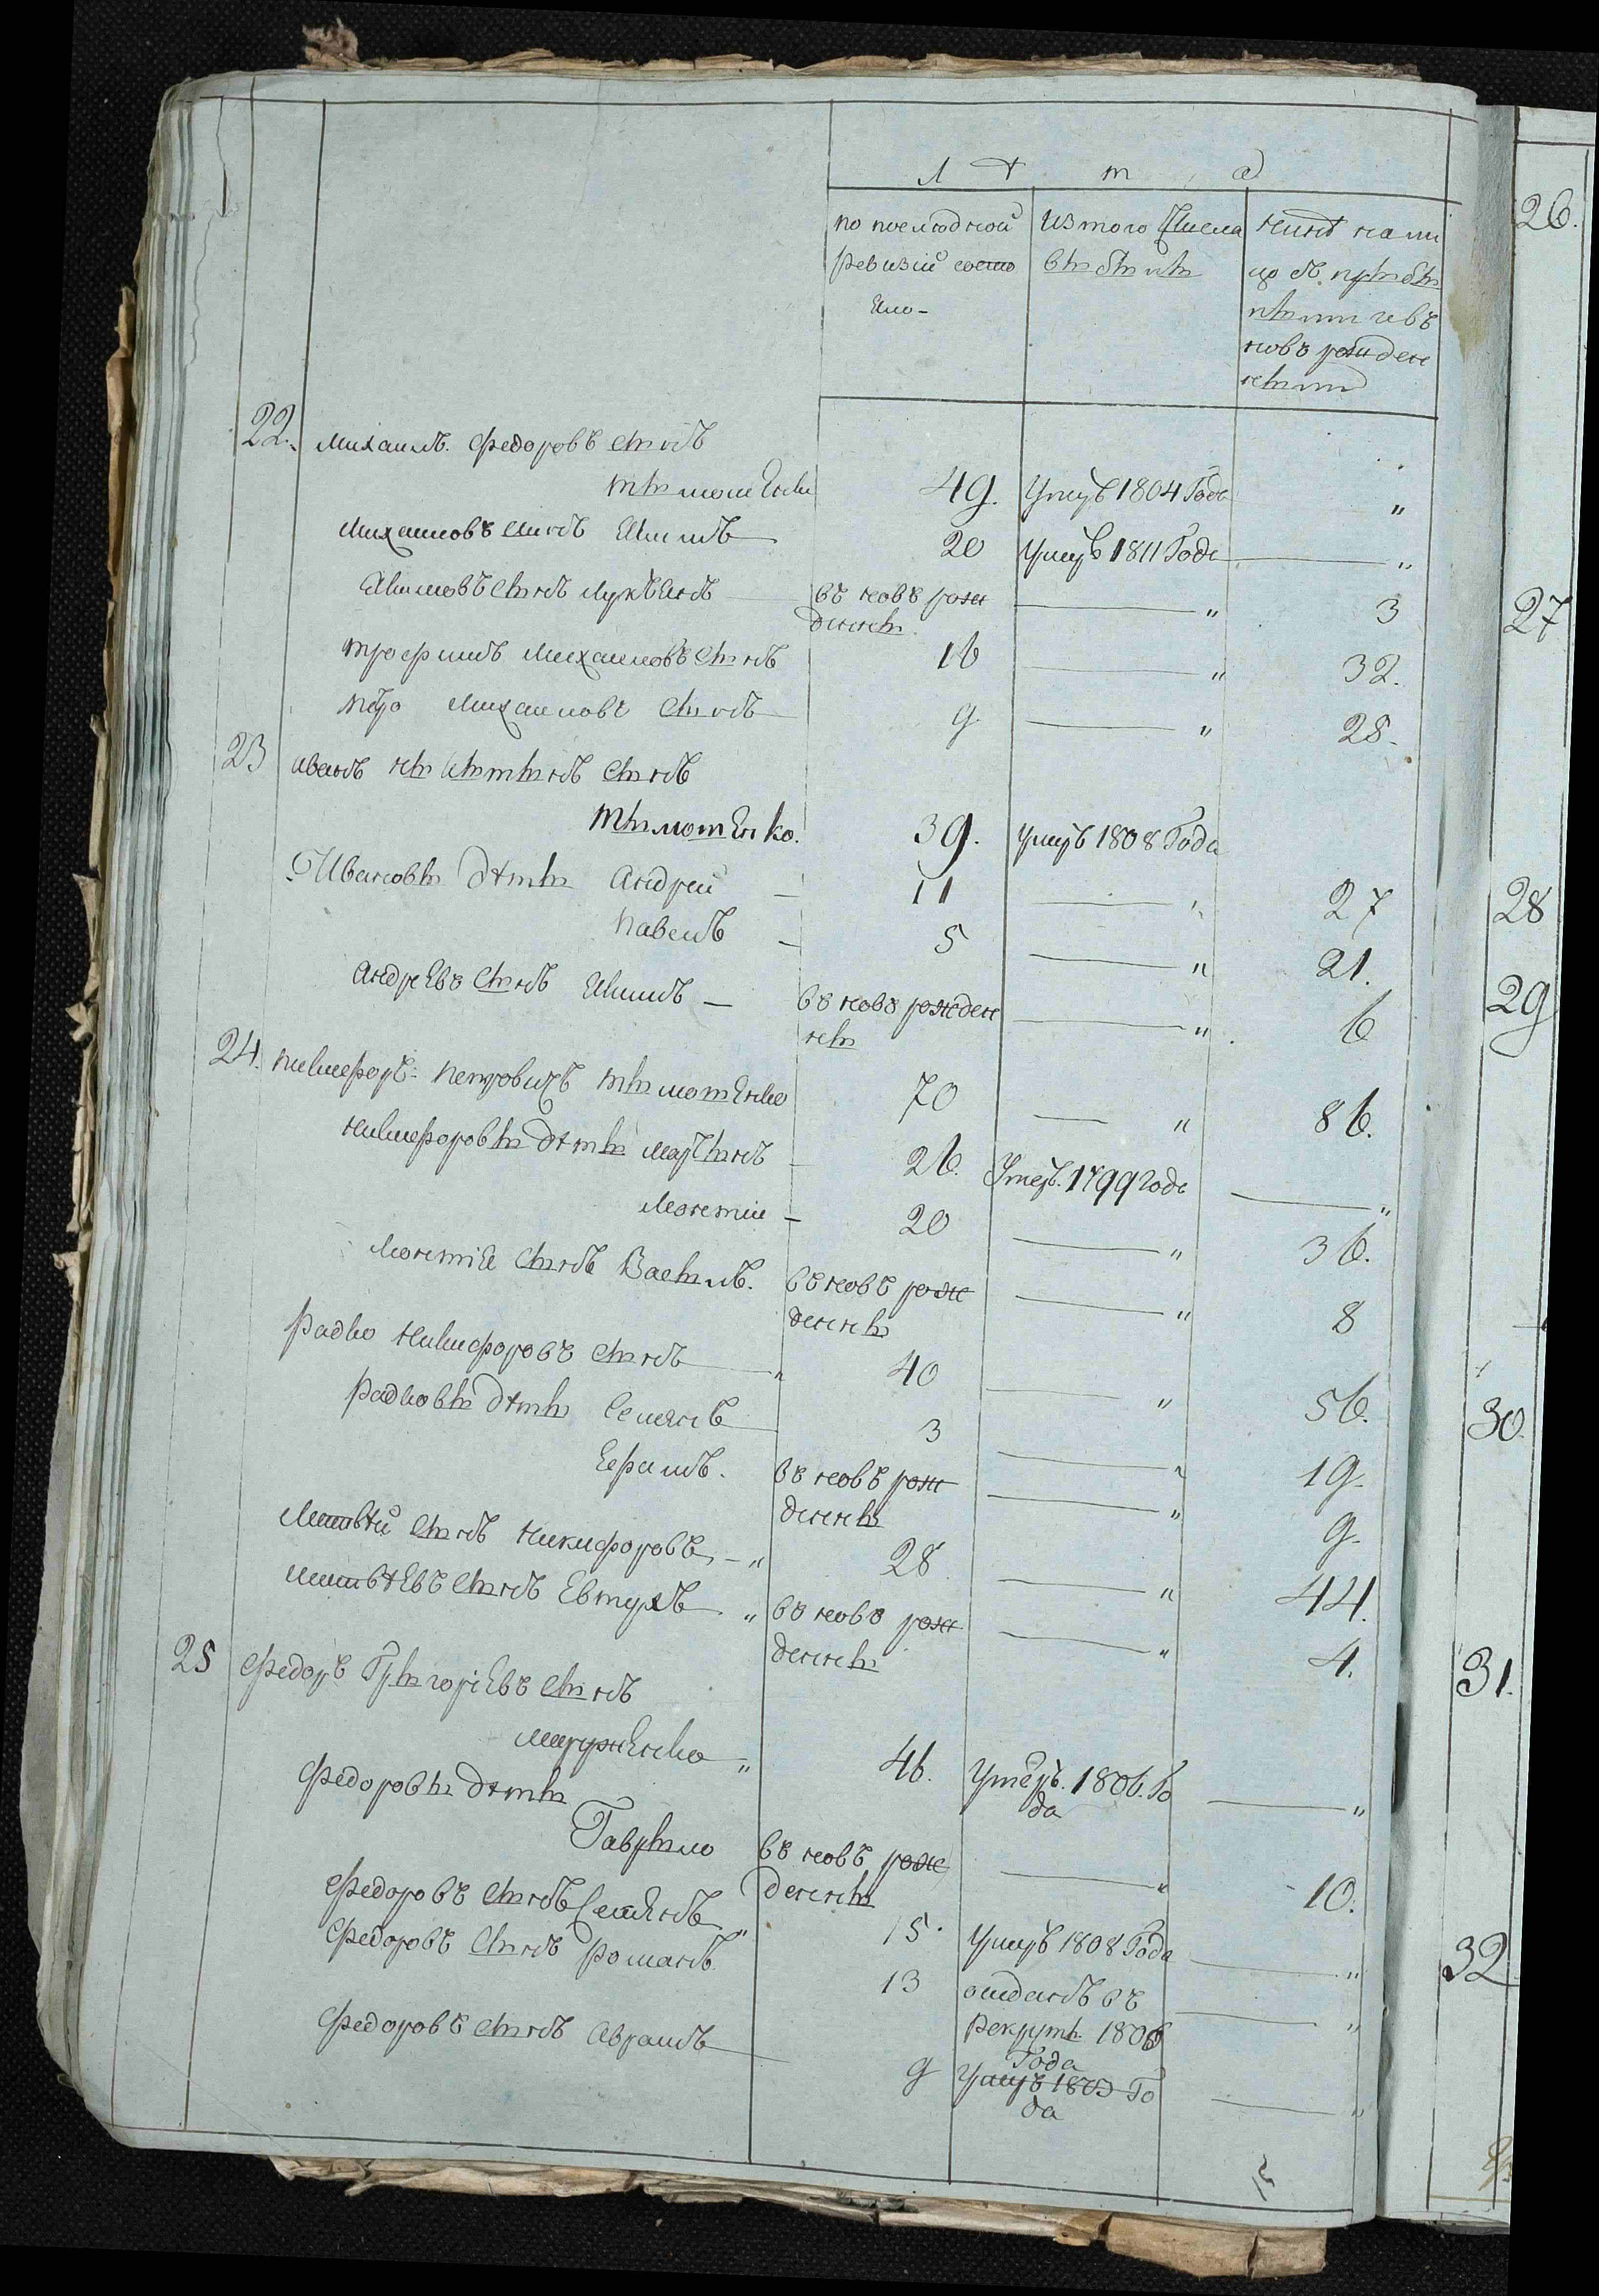 Лѣта
по последной
ревизіи состо
яло-
из того числа
выбыли
ныне на ли
цо съ прыбы
лыми и въ
новъ рожден
ными
22. Михаилъ Федоровъ сынъ
Тымошенко 49. умеръ 1804 Года „
Михаиловъ сынъ Якимъ 20 умеръ 1811 Года „
Якимовъ сынъ Лукъянъ въ новъ рож „ 3
денны
Трофимъ Михаиловъ сынъ 16 „ 32.
Михаиловъ сынъ 9 „ 28.
23 Иванъ сынъ
Тымошенко. 39. умеръ 1808 Года
Ивановы дѣты Андреи 11 „ 27
Павелъ 5 „ 21.
Андреевъ сынъ Якимъ въ новъ рожден „ 6
ны
24. Никифоръ Петровичъ Тымошенко 70 „ 86.
Никифоровы дѣты Мартынъ 26. Умеръ 1799 года „
Леонтии 20 „ 36.
Леонтіе сынъ Васылъ. въ новъ рож „ 8
денны
Радко Никифоровъ сынъ „ 40 „ 56.
Радковы дѣты Семенъ 3 „ 19.
Ефимъ. въ новъ рож „ 9.
денны
Матвѣй сынъ Никифоровъ „ 28 „ 44.
Матвѣевъ сынъ Евтухъ „ въ новъ рож „ 4.
денны
25 Федоръ Грыгоріевъ сынъ
„ 46. Умеръ 1806. Го „
да
Федоровы дѣты
Гаврыло въ новъ рож „ 10.
денны
Федоровъ сынъ Семенъ „ 15. умеръ 1808 Года „
Федоровъ сынъ Романъ 13 отданъ въ „
рекруты 1806
Года
Федоровъ сынъ Аврамъ 9 умеръ 1803 Го „
да
26.
27
28
29
30
31.
32